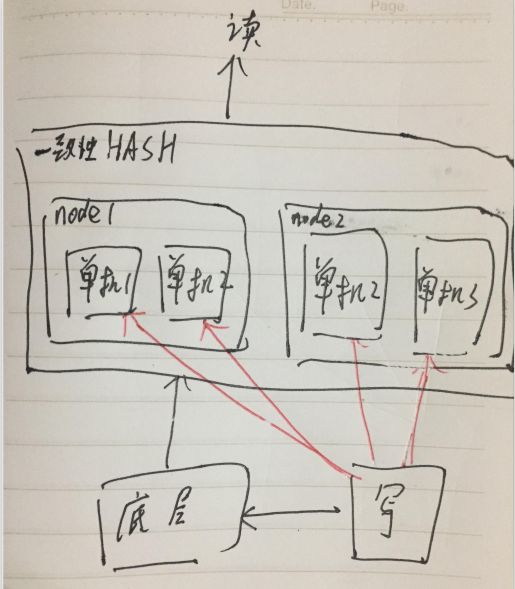 Date. Page.
读
一致性HASH
node1
node2
单机1
单机2
单机2
单机3
底层
写